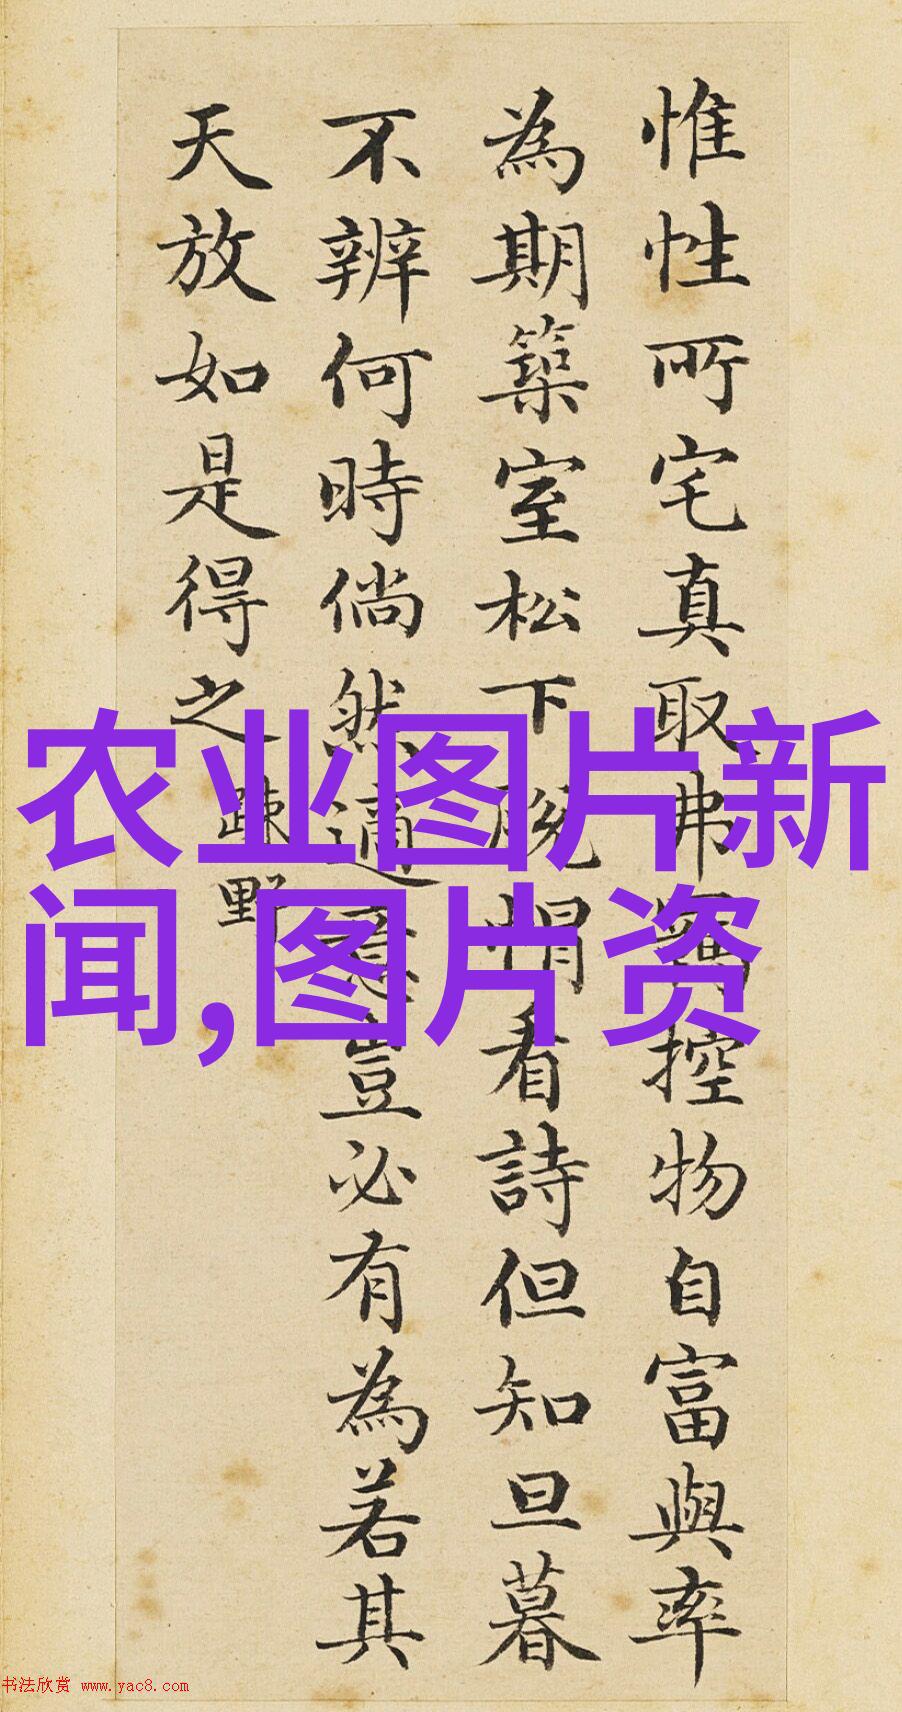 惟性所宅真取弗羈控物自富與率
為期築室松下脫帽看詩但知旦暮
不辨何時倘然適意豈必有為若其
天放如是得之
踈野
农业图片新
闻,图片资
书法欣赏 www.yac8.com